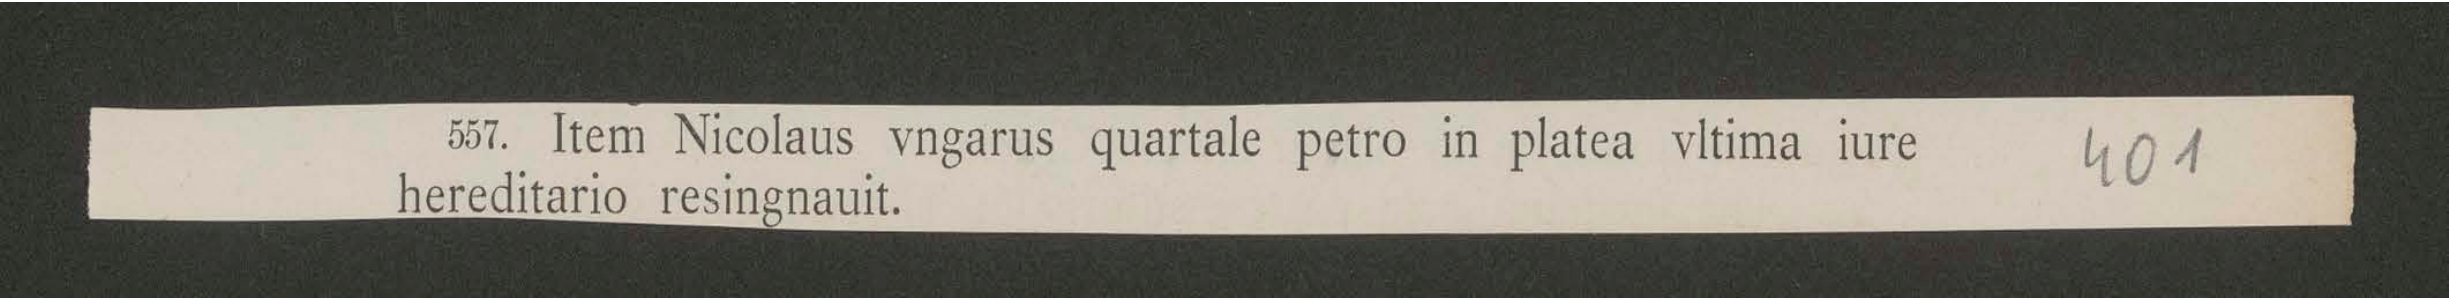 557. Item Nicolaus vngarus quartale petro in platea vltima iure 401
hereditario resingnauit.